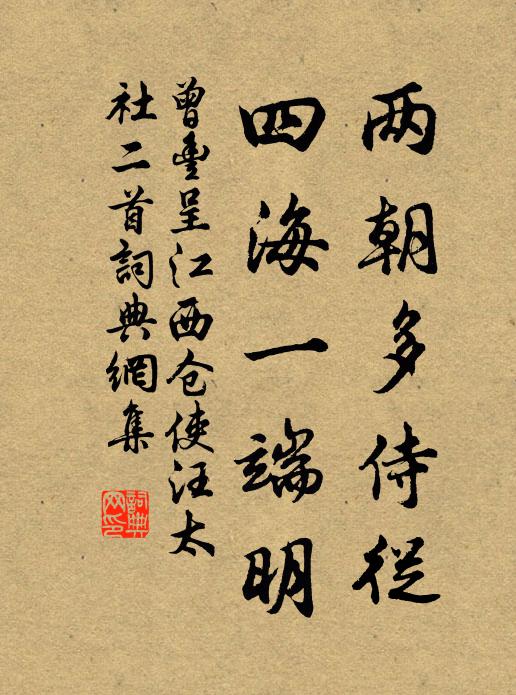 两朝多侍従
四海一端明
曾豊呈江西仓使汪太
社二首詞典網集
詞典網印